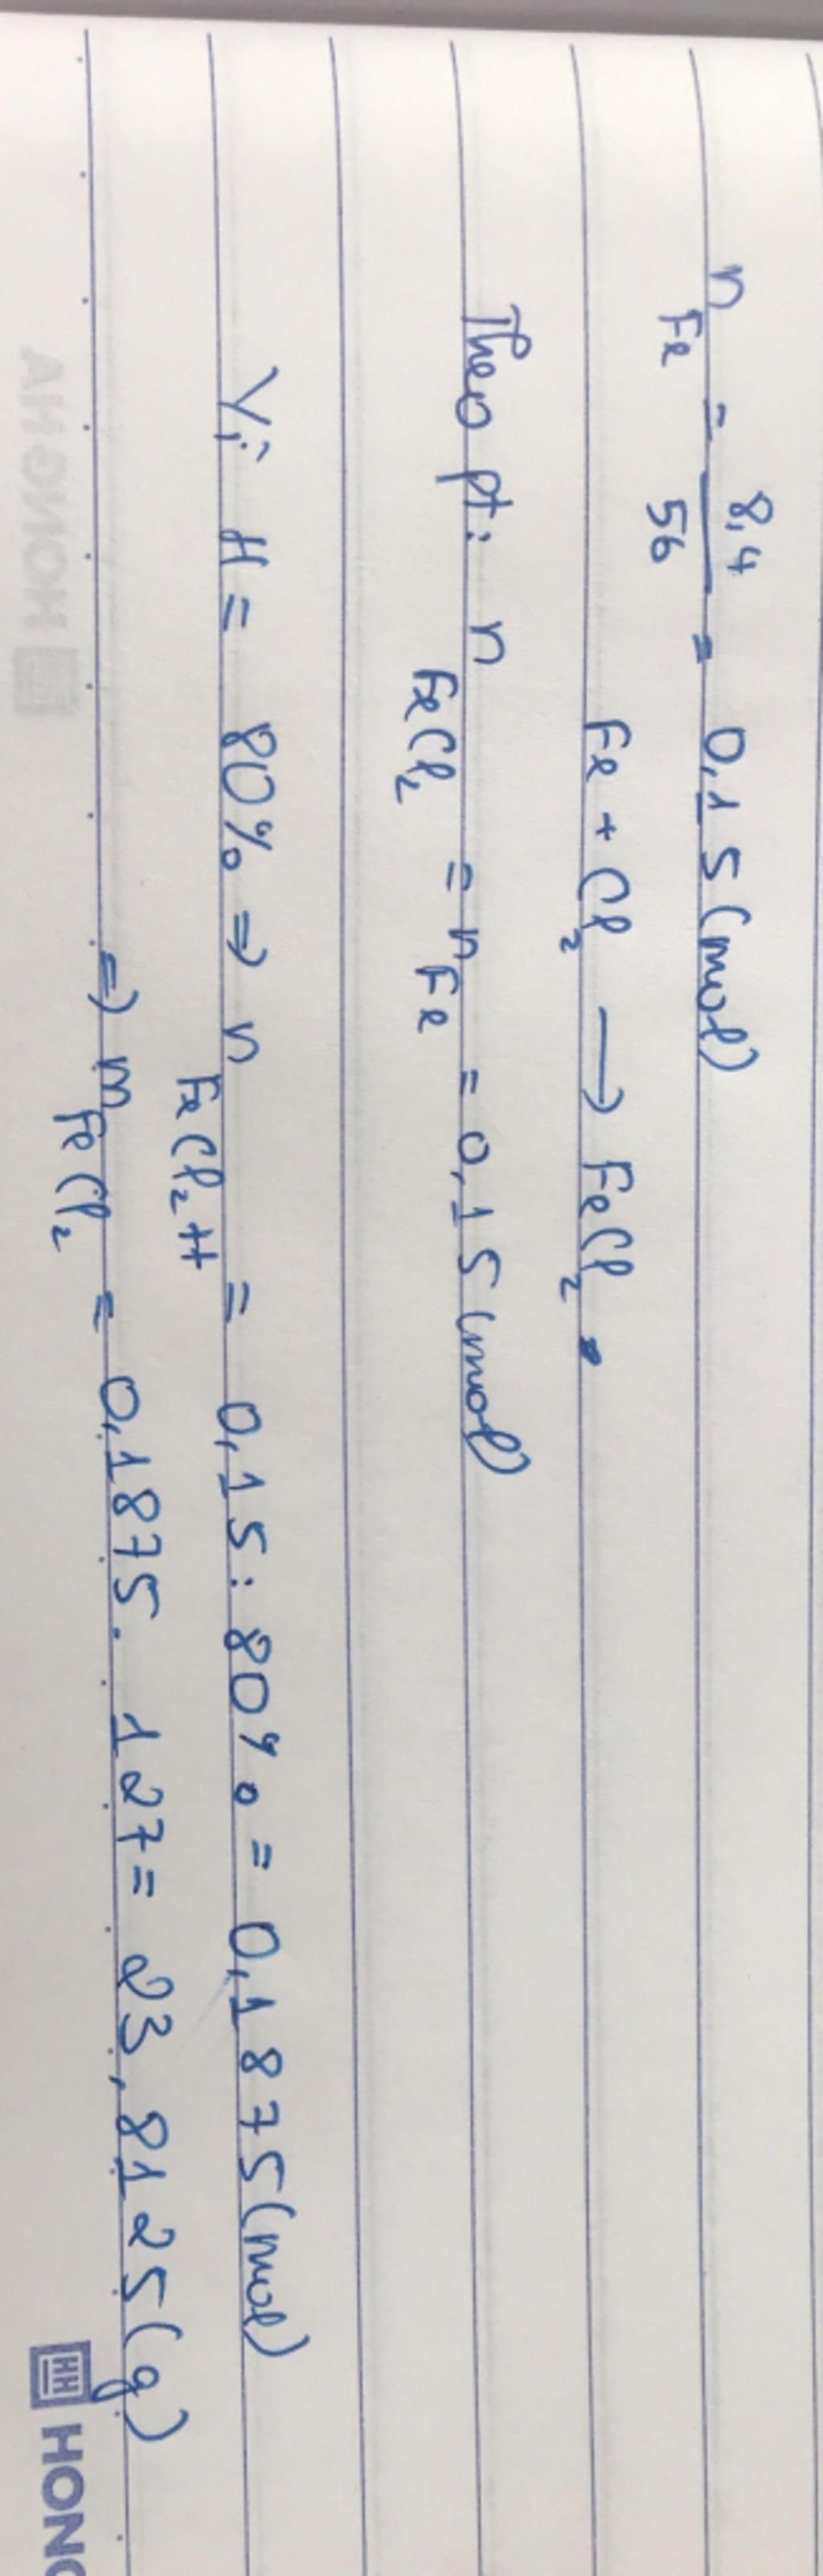 n Fe = 8,4/56 = 0,15 (mol)
Fe + Cl₂ → FeCl₂.
Theo pt: n FeCl₂ = n Fe = 0,15 (mol)
Vì H = 80% ⇒ n FeCl₂ tt = 0,15 : 80% = 0,1875 (mol)
⇒ m FeCl₂ = 0,1875. 127 = 23,8125 (g)
HONG HA
HONG